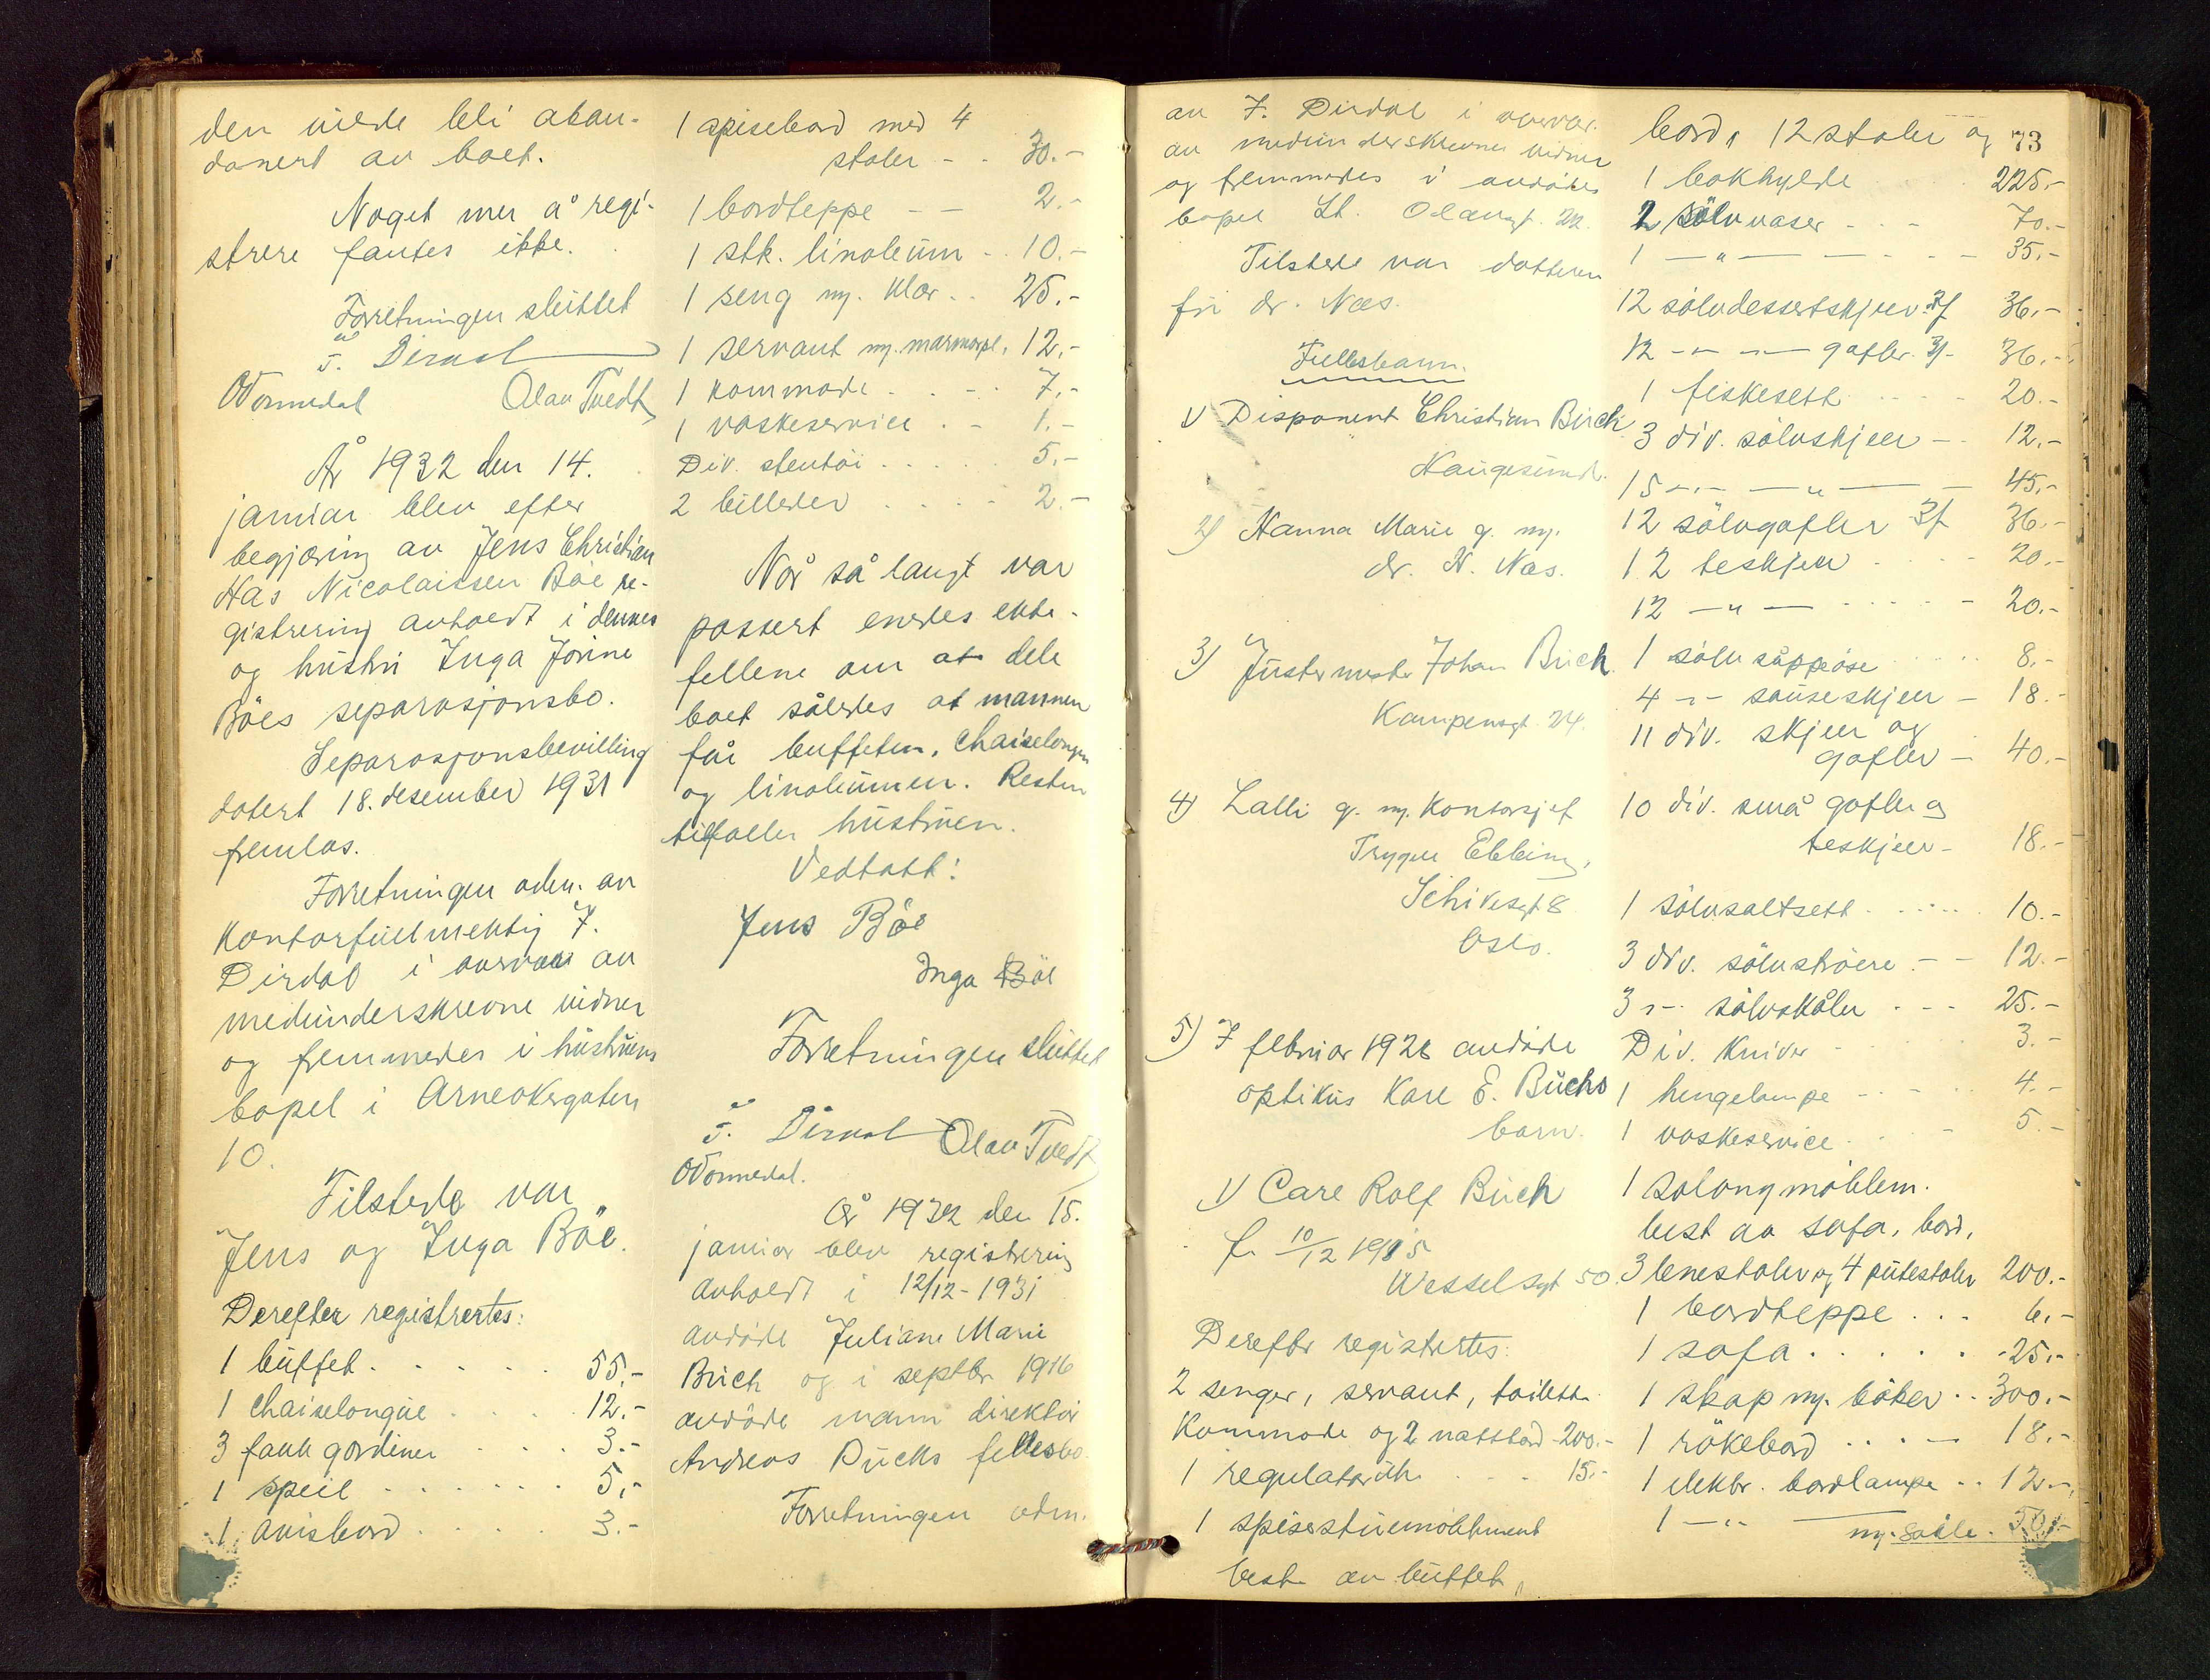 den vilde bli aban-
donert av boet.
Noget mer å regi-
strere fantes ikke.
Forretningen sluttet
J. Dirdal
O Vonnedal Olav Tvedt
År 1932 den 14.
januar blev efter
begjæring av Jens Christian
Has Nicolaissen Böe re-
gistrering avholdt i dennes
og hustru Inga Jorine
Böes separasjonsbo.
Separasjonsbevilling
datert 18. desember 1931
fremlas.
Forretningen adm. av
kontorfullmektig J.
Dirdal i overvær av
medunderskrevne vidner
og fremmedes i hustruens
bopel i Arneakergaten
10.
Tilstede var
Jens og Inga Böe.
Derefter registrertes:
1 buffet . . . . . 55.-
1 chaiselongue . . . . 12.-
3 fakk gardiner . . . 3.-
1 speil . . . . . . 5.-
1 avisbord . . . . 3.-
1 spisebord med 4
stoler - . 30.-
1 bordteppe - - 2.-
1 stk. linoleum . . 10.-
1 seng m. klær . . 25.-
1 servant m. marmorpl. 12.-
1 kommode . . . . 7.-
1 vaskeservice . - 1.-
Div. stentöi . . . . . 5.-
2 billeder . . . . 2.-
Når så langt var
passert enedes ekte-
fellene om at dele
boet således at mannen
får buffeten, chaiselongen
og linoleumen. Resten
tilfaller hustruen.
Vedtatt:
Jens Böe
Inga Böe
Forretningen sluttet
J. Dirdal Olav Tvedt
O Vonnedal.
År 1932 den 15.
januar blev registrering
avholdt i 12/12-1931
avdöde Juliane Marie
Buch og i septbr 1916
avdöde mann direktör
Andreas Buchs fellesbo.
Forretningen adm.
av J. Dirdal i overvær
av medunderskrevne vidner
og fremmedes i avdödes
bopel St. Olavsgt. 22.
Tilstede var datteren
fru dr. Næs.
Fellesbarn.
1) Disponent Christian Buch
Haugesund.
2) Hanna Marie g. m.
dr. N. Næs.
3) Justermester Johan Buch
Kampensgt. 24.
4) Lalli g. m. kontorsjef
Trygve Ebbing,
Schivesgt 8
Oslo.
5) I februar 1928 avdöde
optikus Karl E. Buchs
barn.
1) Care Rolf Buch
f. 10/12 1915
Wesselsgt 50.
Derefter registrertes:
2 senger, servant, toilett
kommode og 2 nattbord - 200.-
1 regulatorur . . . 15.-
1 spisestuemöblement
best. av buffet,
bord, 12 stoler og 73
1 bokhylde . . . 225.-
2 sölvvaser . . - 70.-
1 -"- - . . - 35.-
12 sölvdessertskjeer 3/- 36.-
12 -"- -"- gafler 3/- 36.-
1 fiskesett . . . - 20.-
3 div. sölvskjeer - . 12.-
15 -"- -"- - 45.-
12 sölvgafler 3/- 36.-
12 teskjeer . . . 20.-
12 -"- . . . . - 20.-
1 sölv suppeöse . . . . 8.-
4 -"- sauseskjeer - 18.-
11 div. skjeer og
gafler - 40.-
10 div. små gafler og
teskjeer - 18.-
1 sölvsaltsett . . . . . 10.-
3 div. sölvströere . - - 12.-
3 -"- sölvskåler . - - 25.-
Div. kniver - . . 3.-
1 hengelampe - . - . 4.-
1 vaskeservice . . . - 5.-
1 salongmöblem.
best av sofa, bord,
3 lenestoler og 4 putestoler 200.-
1 bordteppe . . . 6.-
1 sofa . . . . . 25.-
1 skap m. böker . . 300.-
1 rökebord . . . - 18.-
1 elektr. bordlampe . . 12.-
1 -"- m. söile . 50.-